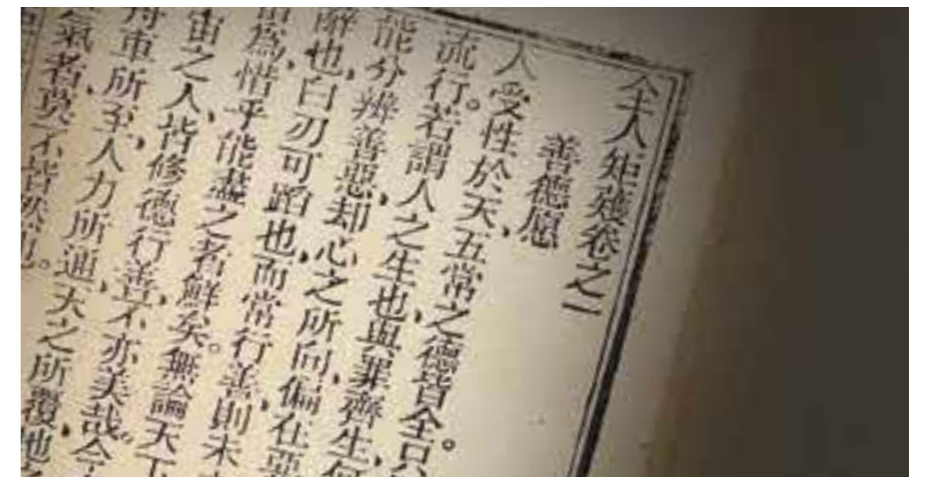 全人矩矱卷之一
善德愿
人受性於天,五常之德皆全。只
流行。若謂人之生也,與罪齊生,何
能分辨善惡,却心之所向,偏在惡
辭也,白刃可蹈也,而常行善,則未
為,惜乎能盡之者鮮矣。無論天下
宙之人,皆修德行善,不亦美哉。今
舟車所至,人力所通,天之所覆,地之
氣者,莫不皆然也。